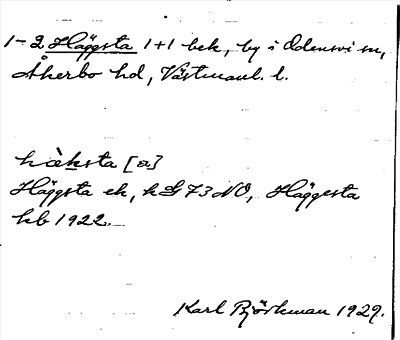 1-2 Häggsta 1+1 bek, by i Odensvi sn,
Åkerbo hd, Västmanl. l.
hàksta [a]
Häggsta ek, kG 73 NO, Häggesta
kb 1922.
Karl Björkman 1929.